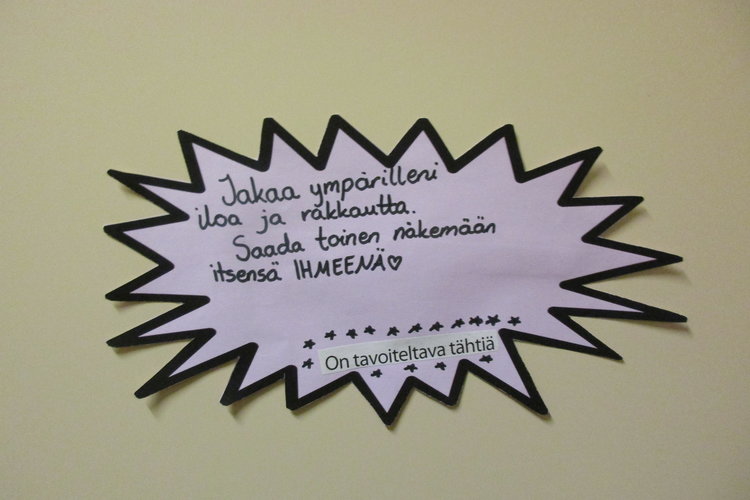 Jakaa ympärilleni
iloa ja rakkautta.
Saada toinen näkemään
itsensä IHMEENÄ♡
On tavoiteltava tähtiä